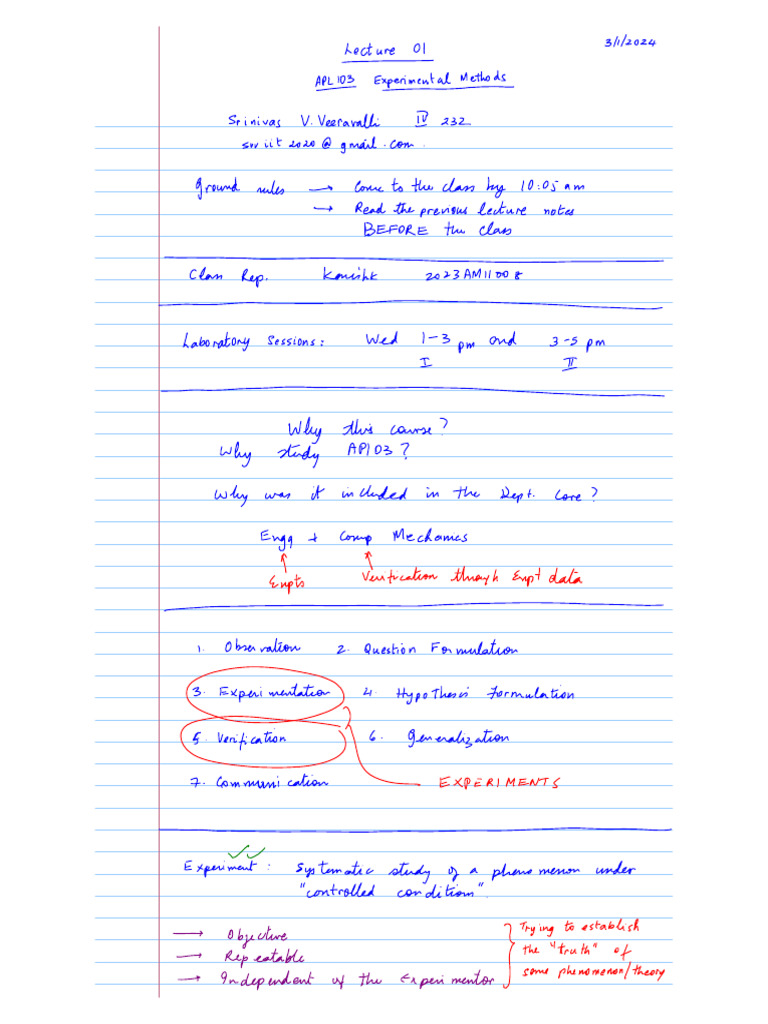 Lecture 01
3/1/2024
APL103 Experimental Methods
Srinivas V. Veeravalli IV 232
svviit2020@gmail.com.
Ground rules → Come to the class by 10:05 am
→ Read the previous lecture notes
BEFORE the class
Class Rep. 2023AM11008
Laboratory Sessions: Wed 1-3 pm and 3-5 pm
I II
Why this course?
Why study APL103?
Why was it included in the Dept. Core?
Engg + Comp Mechanics
Expts Verification through Expt data
1. Observation 2. Question Formulation
3. Experimentation 4. Hypothesis Formulation
5. Verification 6. Generalization
7. Communication EXPERIMENTS
Experiment: Systematic study of a phenomenon under
"controlled conditions".
→ Objective
→ Repeatable
→ Independent of the Experimentor
Trying to establish
the "truth" of
some phenomenon/theory